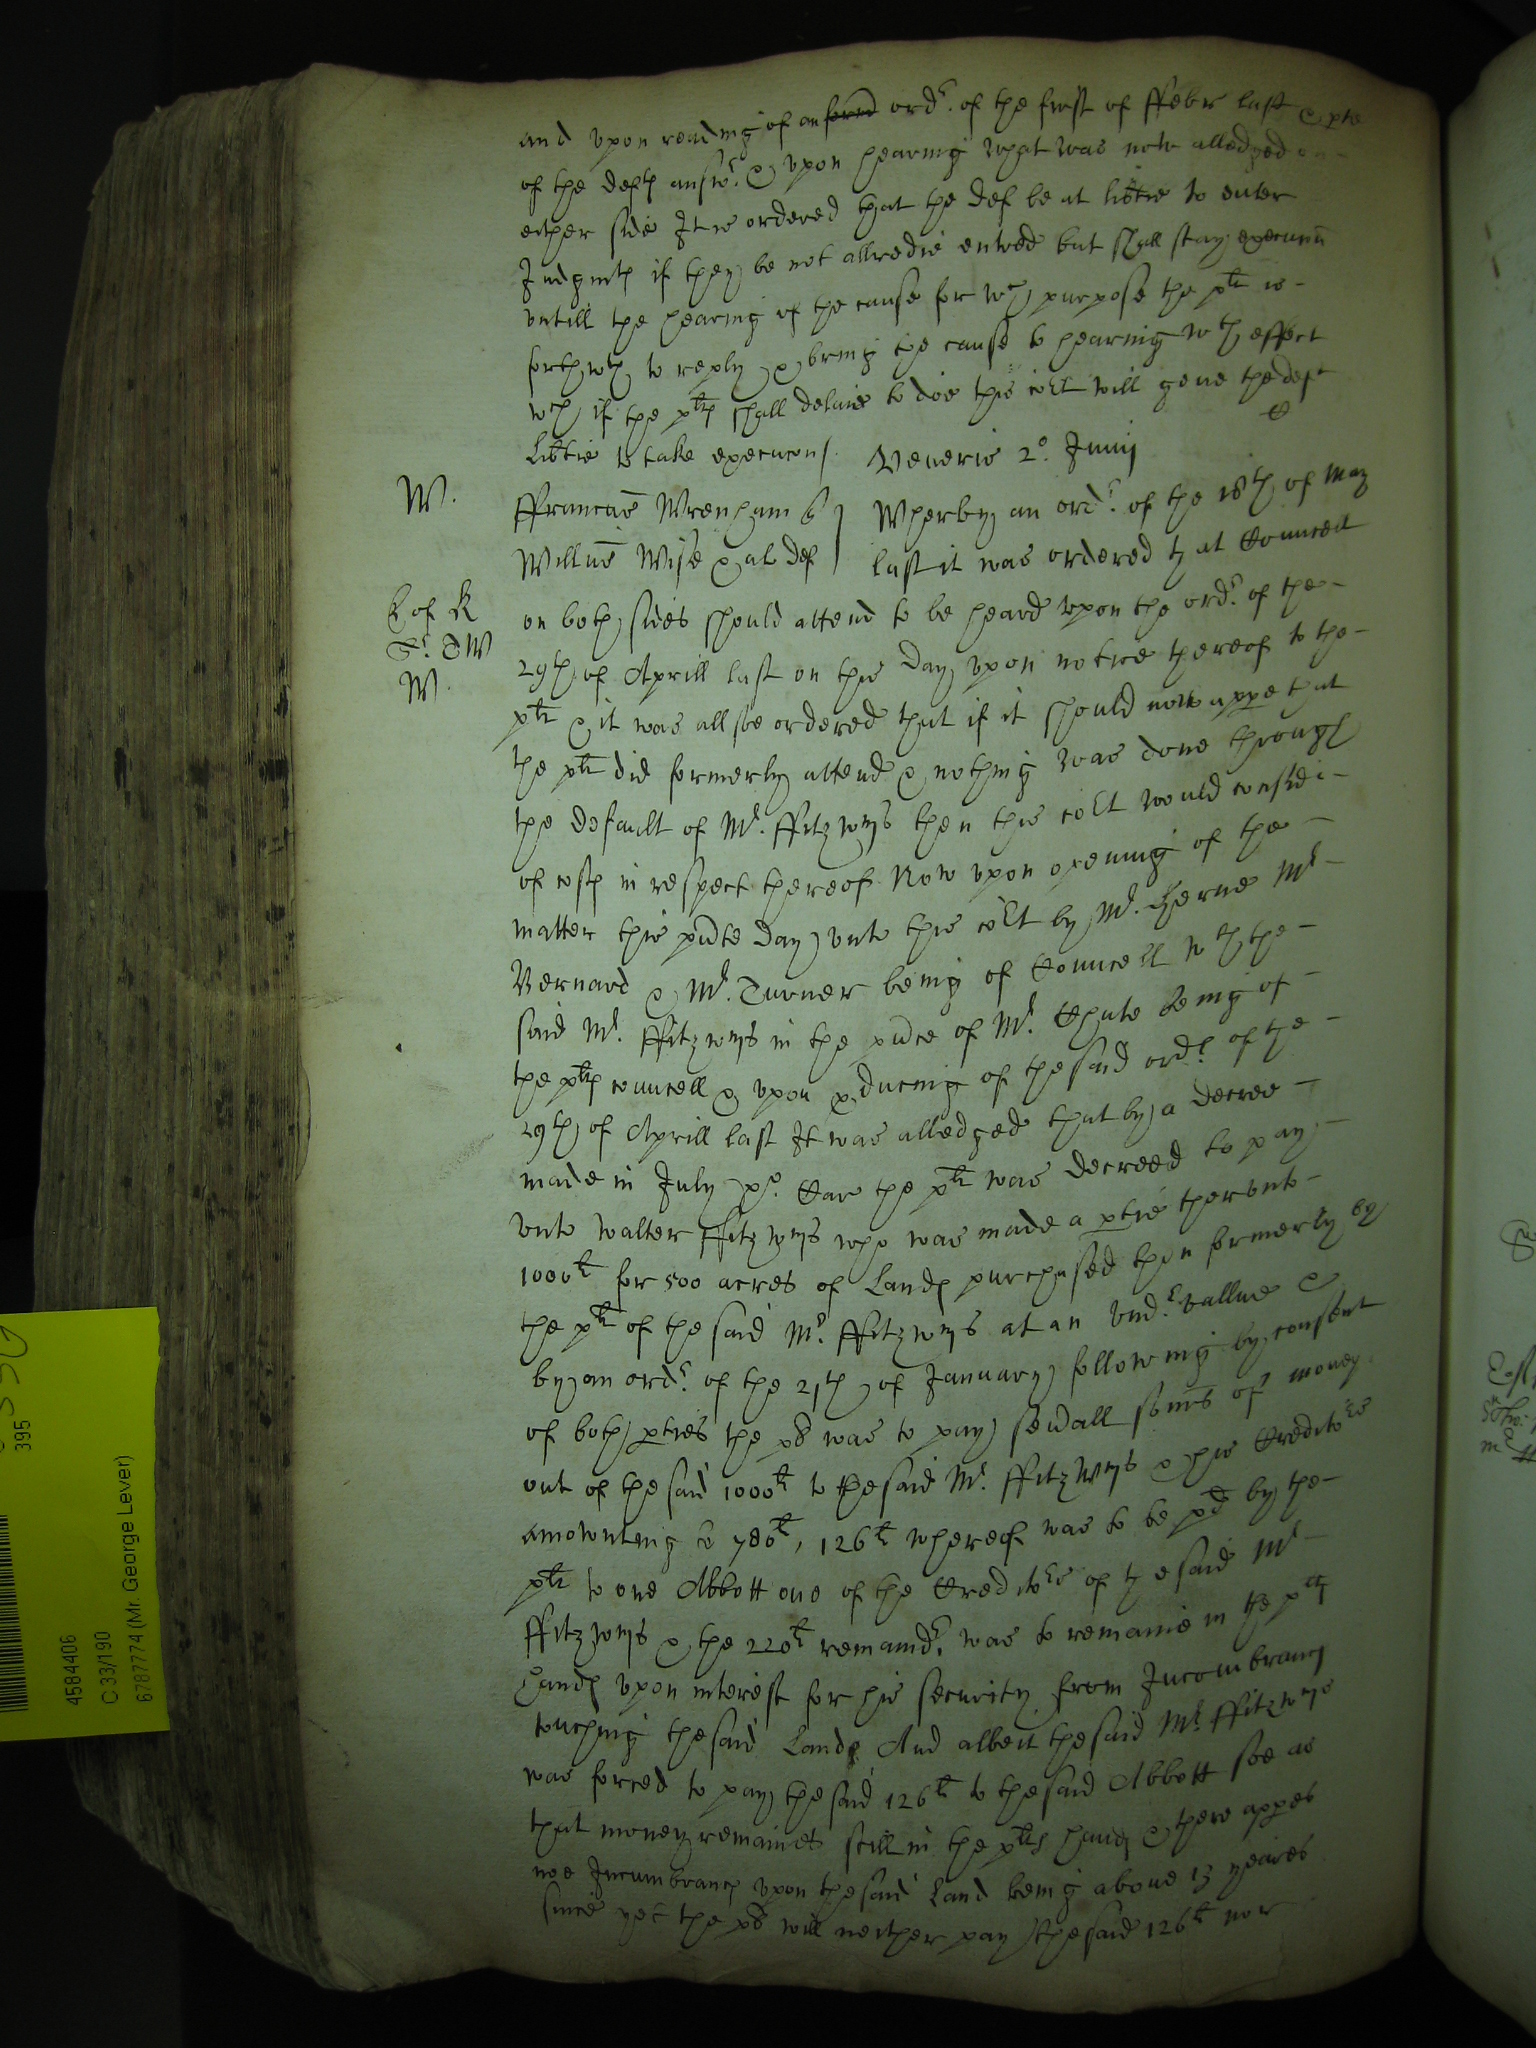 and vpon reading of an ford ordr. of the first of ffebr last & pte
of the deftes answr. & vpon hearing what was now alledged on
either side It is ordered that the def be at libtie to enter
Judgmtes if they be not allredie entred but shall stay execucon
vntill the hearing of the cause for wch purpose the plt is
forthwth to reply & bring the cause to hearing wth effect
wch if the pltes shall delaie to doe this cort will geue the deft
libtie to take execucon /. Veneris 2o. Junij
W.
ffranciscus Wrenham q
Willmus Wise & al def
Wherby an ordr. of the 18th of May
last it was ordered that Councell
L of R
Sr. T W
W.
on both sides should attend to be heard vpon the ordr. of the
29th of Aprill last on this day vpon notice thereof to the
plt & it was allsoe ordered that if it should now appe that
the plt did formerly attend & nothing was done through
the default of Mr. ffitzwms then this cort would consider
of costes in respect thereof Now vpon opening of the
matter this pnte day vnto this cort by Mr. Herne Mr
Bernard & Mr. Turner being of Councell wth the
said Mr. ffitzwms in the pnce of Mr. Chute being of
the pltes councell & vpon pducing of the said ordr. of the
29th of Aprill last It was alledged that by a decree
made in July xo. Car the plt was decreed to pay
vnto Walter ffitzwms who was made a ptie thervnto
1000li for 500 acres of Landes purchased then formerly by
the plt of the said Mr. ffitzwms at an vndr. vallue &
by an ordr. of the 21th of January following by consent
of both pties the pl was to pay seuall somes of money
out of the said 1000li to the said Mr. ffitzwms & his Creditors
amounting to 780li, 126li whereof was to be pd by the
plt to one Abbott one of the Creditors of the said Mr
ffitzwms & the 220li remaindr. was to remaine in the pltes
handes vpon interest for his security from Incombrances
touching the said Landes And albeit the said Mr. ffitzwms
was forced to pay the said 126li to the said Abbott soe as
that money remaines still in the pltes handes & there appes
noe Incumbrances vpon the said Land being aboue 13 yeares
since yet the pl will neither pay the said 126li nor
395
4584406
C 33/190
6787774 (Mr. George Lever)